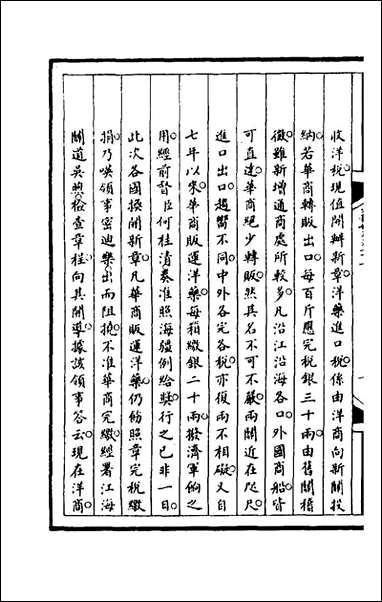 收洋税。現值開辦新章。洋藥進口税。係由洋商向新關投
納。若華商轉販出口。每百斤應完税銀三十兩。由舊關稽
徵。雖新增通商處所較多。凡沿江沿海各口。外國商船皆
可直達。華商絕少轉販。然其名不可不嚴。兩關近在咫尺。
進口出口。趨嚮不同。中外各完各税。亦復兩不相礙。又自
七年以來。華商販運洋藥。每箱繳銀二十兩。撥濟軍餉之
用。經前督臣何桂清奏准。照海疆例給獎。行之已非一日。
此次各國換開新章。凡華商販運洋藥。仍飭照章完税繳
捐。乃𠸄領事密迪樂。出而阻撓。不准華商完繳。經署江海
關道吳煦。檢查章程。向其開導。據該領事答云。現在洋商